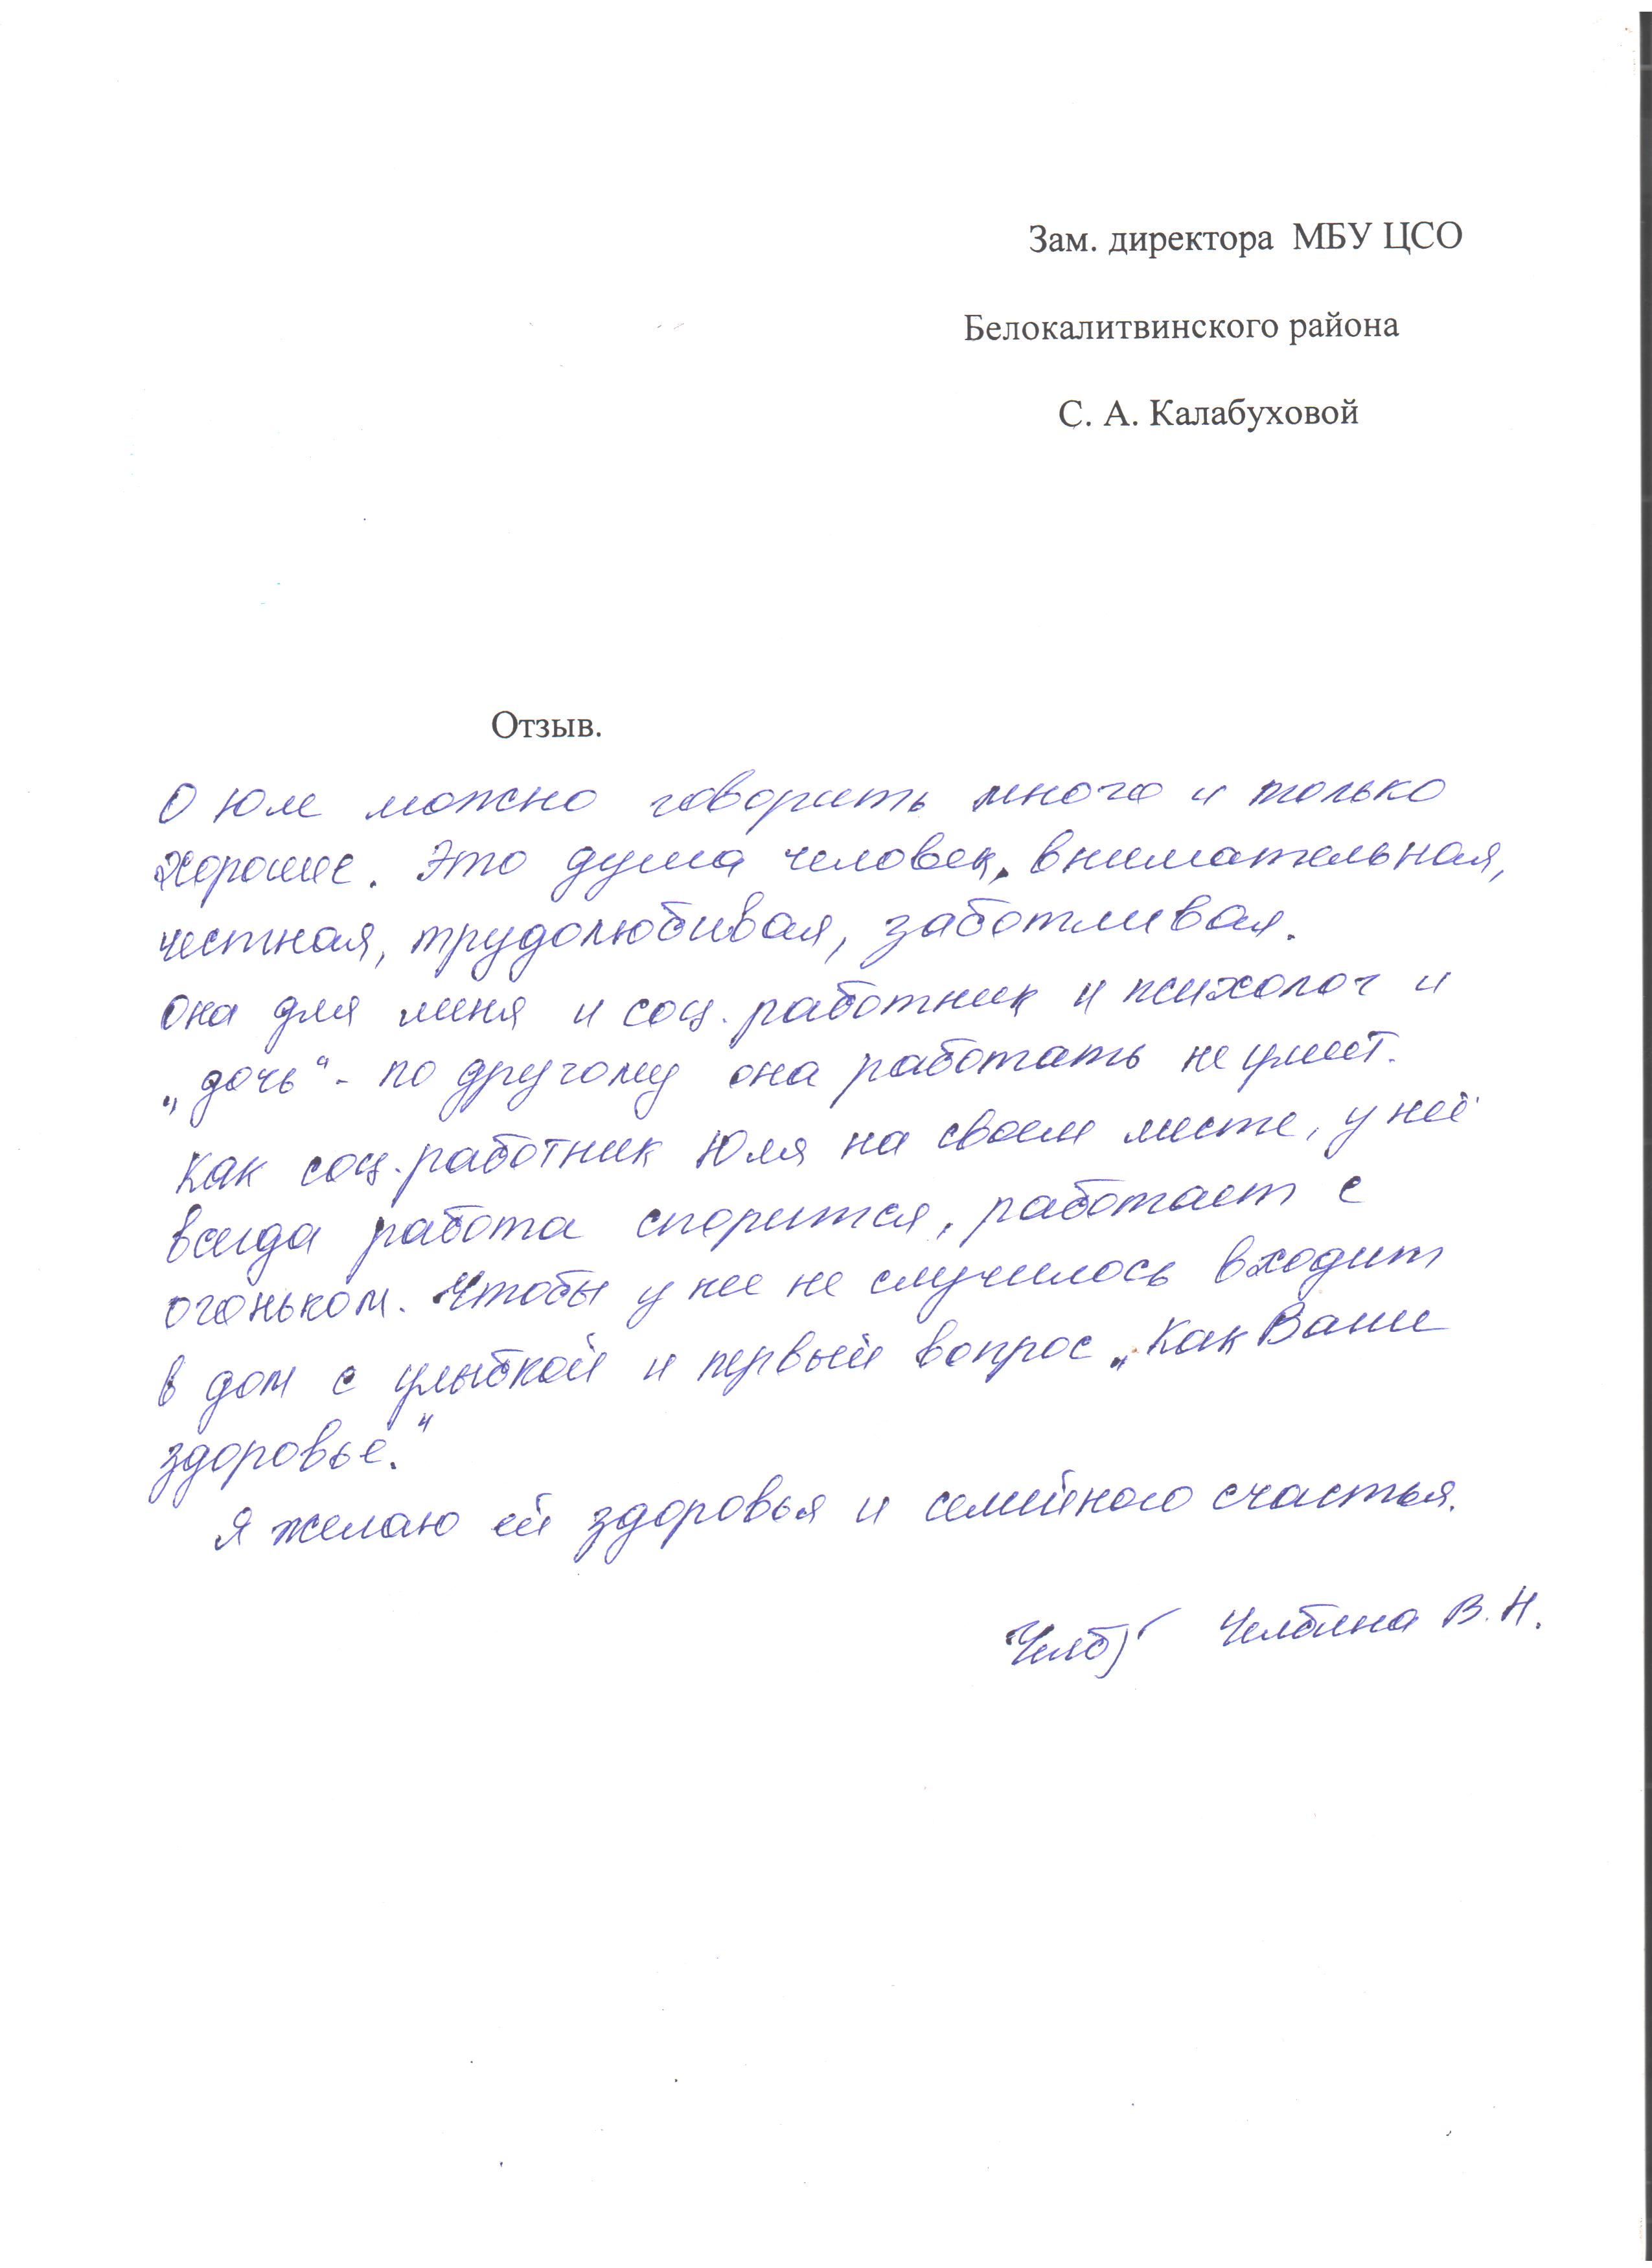 Зам. директора МБУ ЦСО
Белокалитвинского района
С. А. Калабуховой
Отзыв.
О Юле можно говорить много и только
хорошие. Это душа человек, внимательная,
честная, трудолюбивая, заботливая.
Она для меня и соц. работник и психолог и
„дочь“ - по другому она работать не умеет.
Как соц. работник Юля на своем месте, у неё
всегда работа спорится, работает с
огоньком. Чтобы у нее не случилось входит
в дом с улыбкой и первый вопрос „Как Ваше
здоровье.“
Я желаю ей здоровья и семейного счастья.
В. Н.